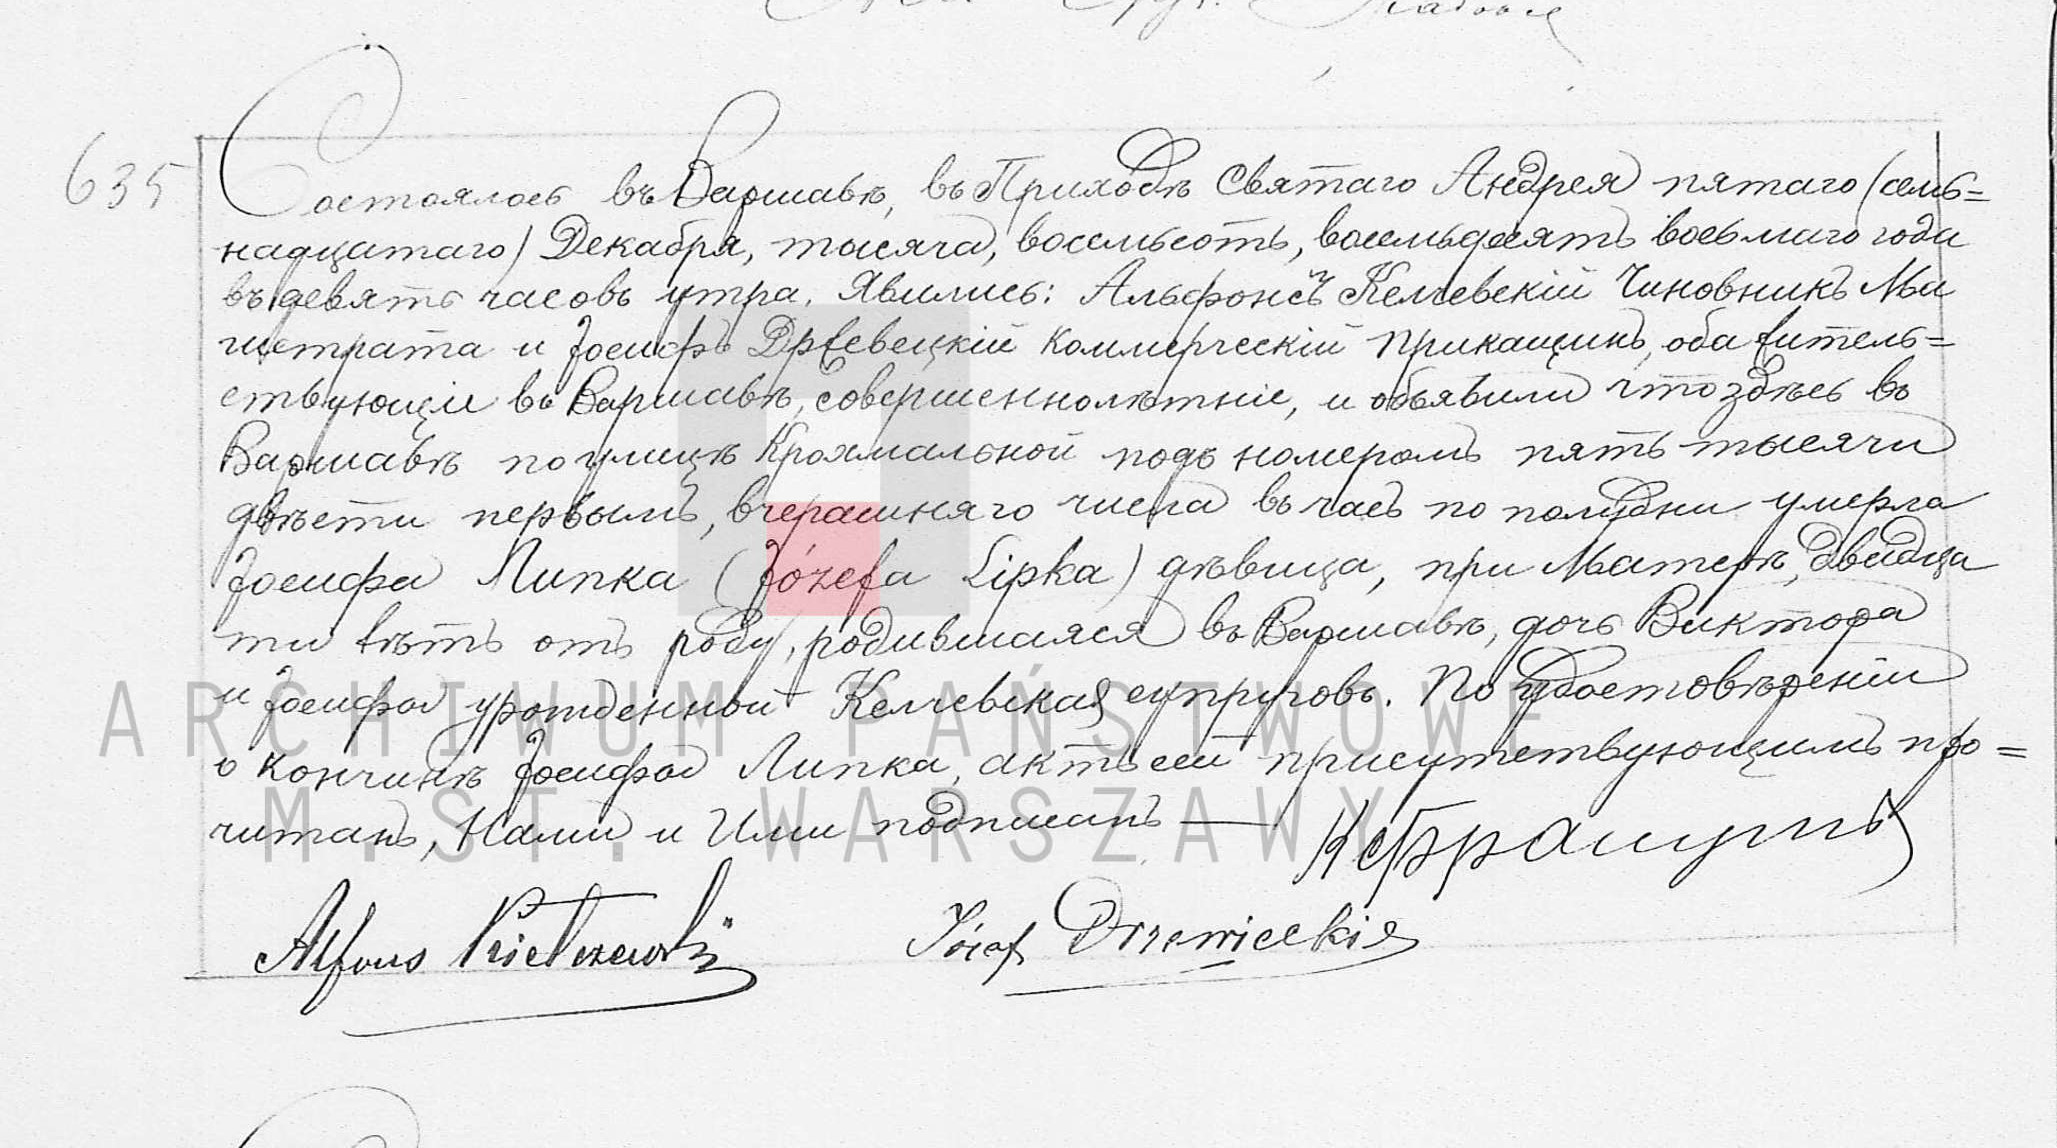 635
Состоялось въ Варшавѣ, въ Приходѣ Святаго Андрея пятаго (сем-
надцатаго) Декабря, тысяча, восемьсотъ, восемьдесятъ восьмаго года
въ девять часовъ утра. Явились: Альфонсъ Келчевскій Чиновникъ Ма
гистрата и Іосифъ Држевецкій Коммерческій Прикащикъ, оба житель-
ствующіе въ Варшавѣ, совершеннолѣтніе, и объявили что здѣсь въ
Варшавѣ по улицѣ Крохмальной подъ номеромъ пять тысячи
двѣсти первымъ, вчерашняго числа въ часъ по полудни умерла
Іосифа Липка (Józefa Lipka) дѣвица, при Матерѣ, двадца
ти лѣтъ отъ роду, родившаяся въ Варшавѣ, дочь Виктора
и Іосифы урожденной Келчевская супруговъ. По удостовѣреніи
о кончинѣ Іосифы Липка, актъ сей присутствующимъ про-
читанъ, Нами и Ими подписанъ —
Alfons Kiełczewski Józef Drzewiecki
ARCHIWUM PAŃSTWOWE
M.ST. WARSZAWY